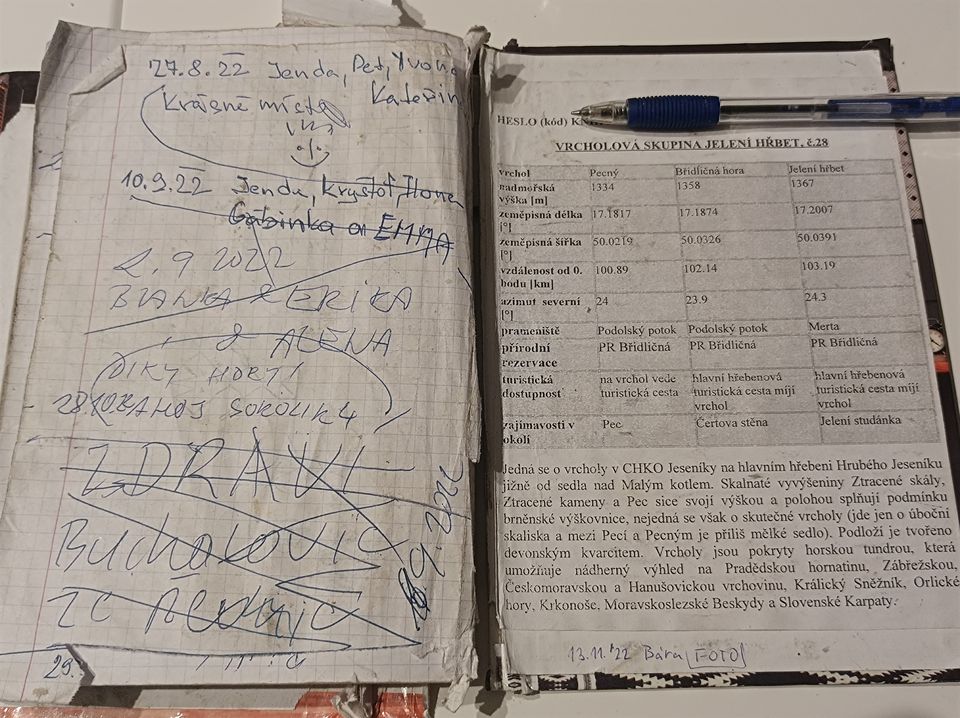 27.8.22 Jenda, Pet, Yvona
Krásné místo Kateřin
10.9.22 Jenda, Kryštof, Ilona
Gábinka a EMMA
2.9 2022
BIANKA & ERIKA
& ALENA
DÍKY HORTY
28.10. AHOJ SOKOLÍK 4
ZDRAVÍ
9.2022
29.
HESLO (kód)
VRCHOLOVÁ SKUPINA JELENÍ HŘBET, č.28
vrchol Pecný Břidličná hora Jelení hřbet
nadmořská 1334 1358 1367
výška [m]
zeměpisná délka 17.1817 17.1874 17.2007
[°]
zeměpisná šířka 50.0219 50.0326 50.0391
[°]
vzdálenost od 0. 100.89 102.14 103.19
bodu [km]
azimut severní 24 23.9 24.3
[°]
prameniště Podolský potok Podolský potok Merta
přírodní PR Břidličná PR Břidličná PR Břidličná
rezervace
turistická na vrchol vede hlavní hřebenová hlavní hřebenová
dostupnost turistická cesta turistická cesta míjí turistická cesta míjí
vrchol vrchol
zajímavosti v Pec Čertova stěna Jelení studánka
okolí
Jedná se o vrcholy v CHKO Jeseníky na hlavním hřebeni Hrubého Jeseníku
jižně od sedla nad Malým kotlem. Skalnaté vyvýšeniny Ztracené skály,
Ztracené kameny a Pec sice svojí výškou a polohou splňují podmínku
brněnské výškovnice, nejedná se však o skutečné vrcholy (jde jen o úboční
skaliska a mezi Pecí a Pecným je příliš mělké sedlo). Podloží je tvořeno
devonským kvarcitem. Vrcholy jsou pokryty horskou tundrou, která
umožňuje nádherný výhled na Pradědskou hornatinu, Zábřežskou,
Českomoravskou a Hanušovickou vrchovinu, Králický Sněžník, Orlické
hory, Krkonoše, Moravskoslezské Beskydy a Slovenské Karpaty.
13.11.'22 Bára [FOTO]